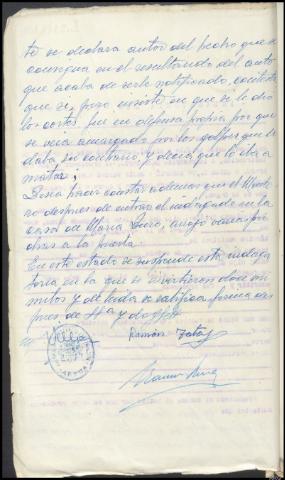 te se declara autor del hecho que se
consigna en el resultando del auto
que acaba de serle notificado,
que si, pero insiste en que si le dio
los cortes fue en defensa propia por que
se veia amargado por los golpes que le
daba su contrario, y decia que lo iba a
matar;
hacer constar ademas que el
no despues de entrar el indagado en la
casa de Maria arrojó varias pie
dras a la puerta
En este estado se suspende esta indaga
toria en la que se invirtieron doce mi
nutos y leida se ratifica, firma des
pues de Sª y doy fe
Ramón